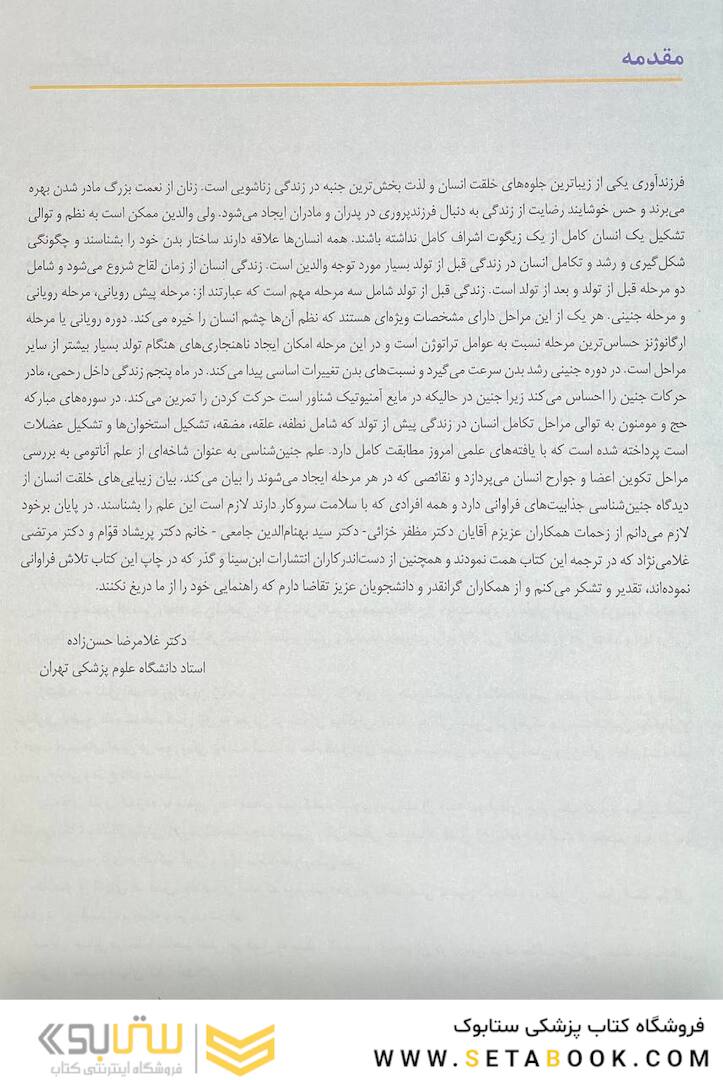 مقدمه
فرزندآوری یکی از زیباترین جلوه‌های خلقت انسان و لذت بخش‌ترین جنبه در زندگی زناشویی است. زنان از نعمت بزرگ مادر شدن بهره
می‌برند و حس خوشایند رضایت از زندگی به دنبال فرزندپروری در پدران و مادران ایجاد می‌شود. ولی والدین ممکن است به نظم و توالی
تشکیل یک انسان کامل از یک زیگوت اشراف کامل نداشته باشند. همه انسان‌ها علاقه دارند ساختار بدن خود را بشناسند و چگونگی
شکل‌گیری و رشد و تکامل انسان در زندگی قبل از تولد بسیار مورد توجه والدین است. زندگی انسان از زمان لقاح شروع می‌شود و شامل
دو مرحله قبل از تولد و بعد از تولد است. زندگی قبل از تولد شامل سه مرحله مهم است که عبارتند از: مرحله پیش رویانی، مرحله رویانی
و مرحله جنینی. هر یک از این مراحل دارای مشخصات ویژه‌ای هستند که نظم آن‌ها چشم انسان را خیره می‌کند. دوره رویانی یا مرحله
ارگانوژنز حساس‌ترین مرحله نسبت به عوامل تراتوژن است و در این مرحله امکان ایجاد ناهنجاری‌های هنگام تولد بسیار بیشتر از سایر
مراحل است. در دوره جنینی رشد بدن سرعت می‌گیرد و نسبت‌های بدن تغییرات اساسی پیدا می‌کند. در ماه پنجم زندگی داخل رحمی، مادر
حرکات جنین را احساس می‌کند زیرا جنین در حالیکه در مایع آمنیوتیک شناور است حرکت کردن را تمرین می‌کند. در سوره‌های مبارکه
حج و مومنون به توالی مراحل تکامل انسان در زندگی پیش از تولد که شامل نطفه، علقه، مضقه، تشکیل استخوان‌ها و تشکیل عضلات
است پرداخته شده است که با یافته‌های علمی امروز مطابقت کامل دارد. علم جنین‌شناسی به عنوان شاخه‌ای از علم آناتومی به بررسی
مراحل تکوین اعضا و جوارح انسان می‌پردازد و نقائصی که در هر مرحله ایجاد می‌شوند را بیان می‌کند. بیان زیبایی‌های خلقت انسان از
دیدگاه جنین‌شناسی جذابیت‌های فراوانی دارد و همه افرادی که با سلامت سروکار دارند لازم است این علم را بشناسند. در پایان برخود
لازم می‌دانم از زحمات همکاران عزیزم آقایان دکتر مظفر خزائی- دکتر سید بهنام‌الدین جامعی - خانم دکتر پریشاد قوّام و دکتر مرتضی
غلامی‌نژاد که در ترجمه این کتاب همت نمودند و همچنین از دست‌اندرکاران انتشارات ابن‌سینا و گذر که در چاپ این کتاب تلاش فراوانی
نموده‌اند، تقدیر و تشکر می‌کنم و از همکاران گرانقدر و دانشجویان عزیز تقاضا دارم که راهنمایی خود را از ما دریغ نکنند.
دکتر غلامرضا حسن‌زاده
استاد دانشگاه علوم پزشکی تهران
فروشگاه کتاب پزشکی ستابوک
WWW.SETABOOK.COM
ستابوک
فروشگاه اینترنتی کتاب